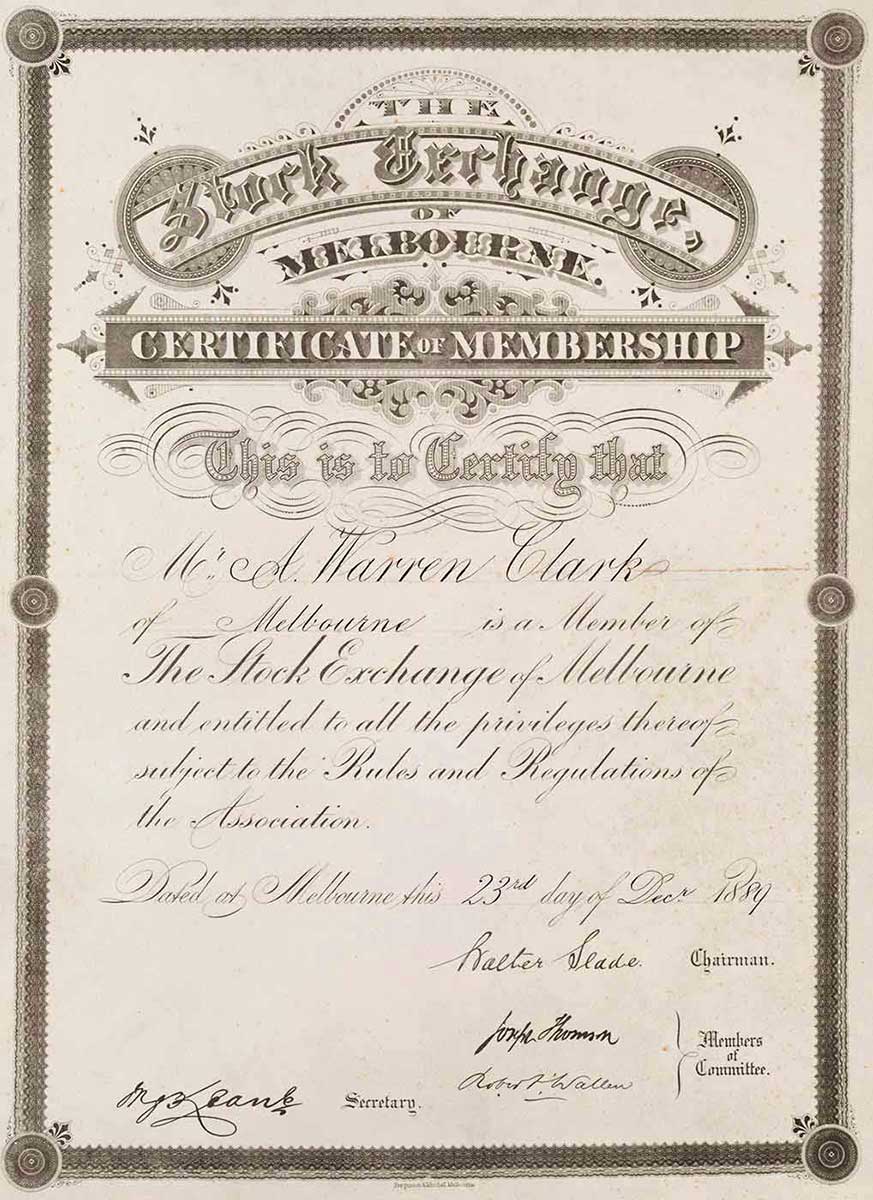 THE
Stock Exchange,
OF
MELBOURNE.
CERTIFICATE OF MEMBERSHIP
This is to Certify that
Mr. A. Warren Clark
of Melbourne is a Member of
The Stock Exchange of Melbourne
and entitled to all the privileges thereof
subject to the Rules and Regulations of
the Association.
Dated at Melbourne this 23rd day of Decr 1889
Walter Slade. Chairman.
Joseph Thomson
Members
of
Committee.
Robert Wallen
Secretary.